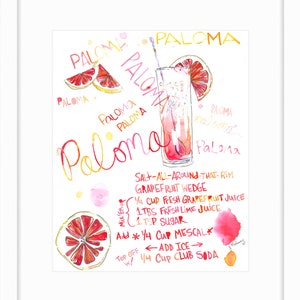 PALOMA
PALOMA
PALOMA
PALOMA
PALOMA
PALOMA
PALOMA
Paloma
Paloma
SALT-ALL-AROUND-THAT-RIM
GRAPEFRUIT WEDGE
1/4 CUP FRESH GRAPEFRUIT JUICE
1 TBS FRESH LIME JUICE
1 TSP SUGAR
Add * 1/4 CUP MESCAL *
← ADD ICE →
TOP OFF w/ 1/4 CUP CLUB SODA